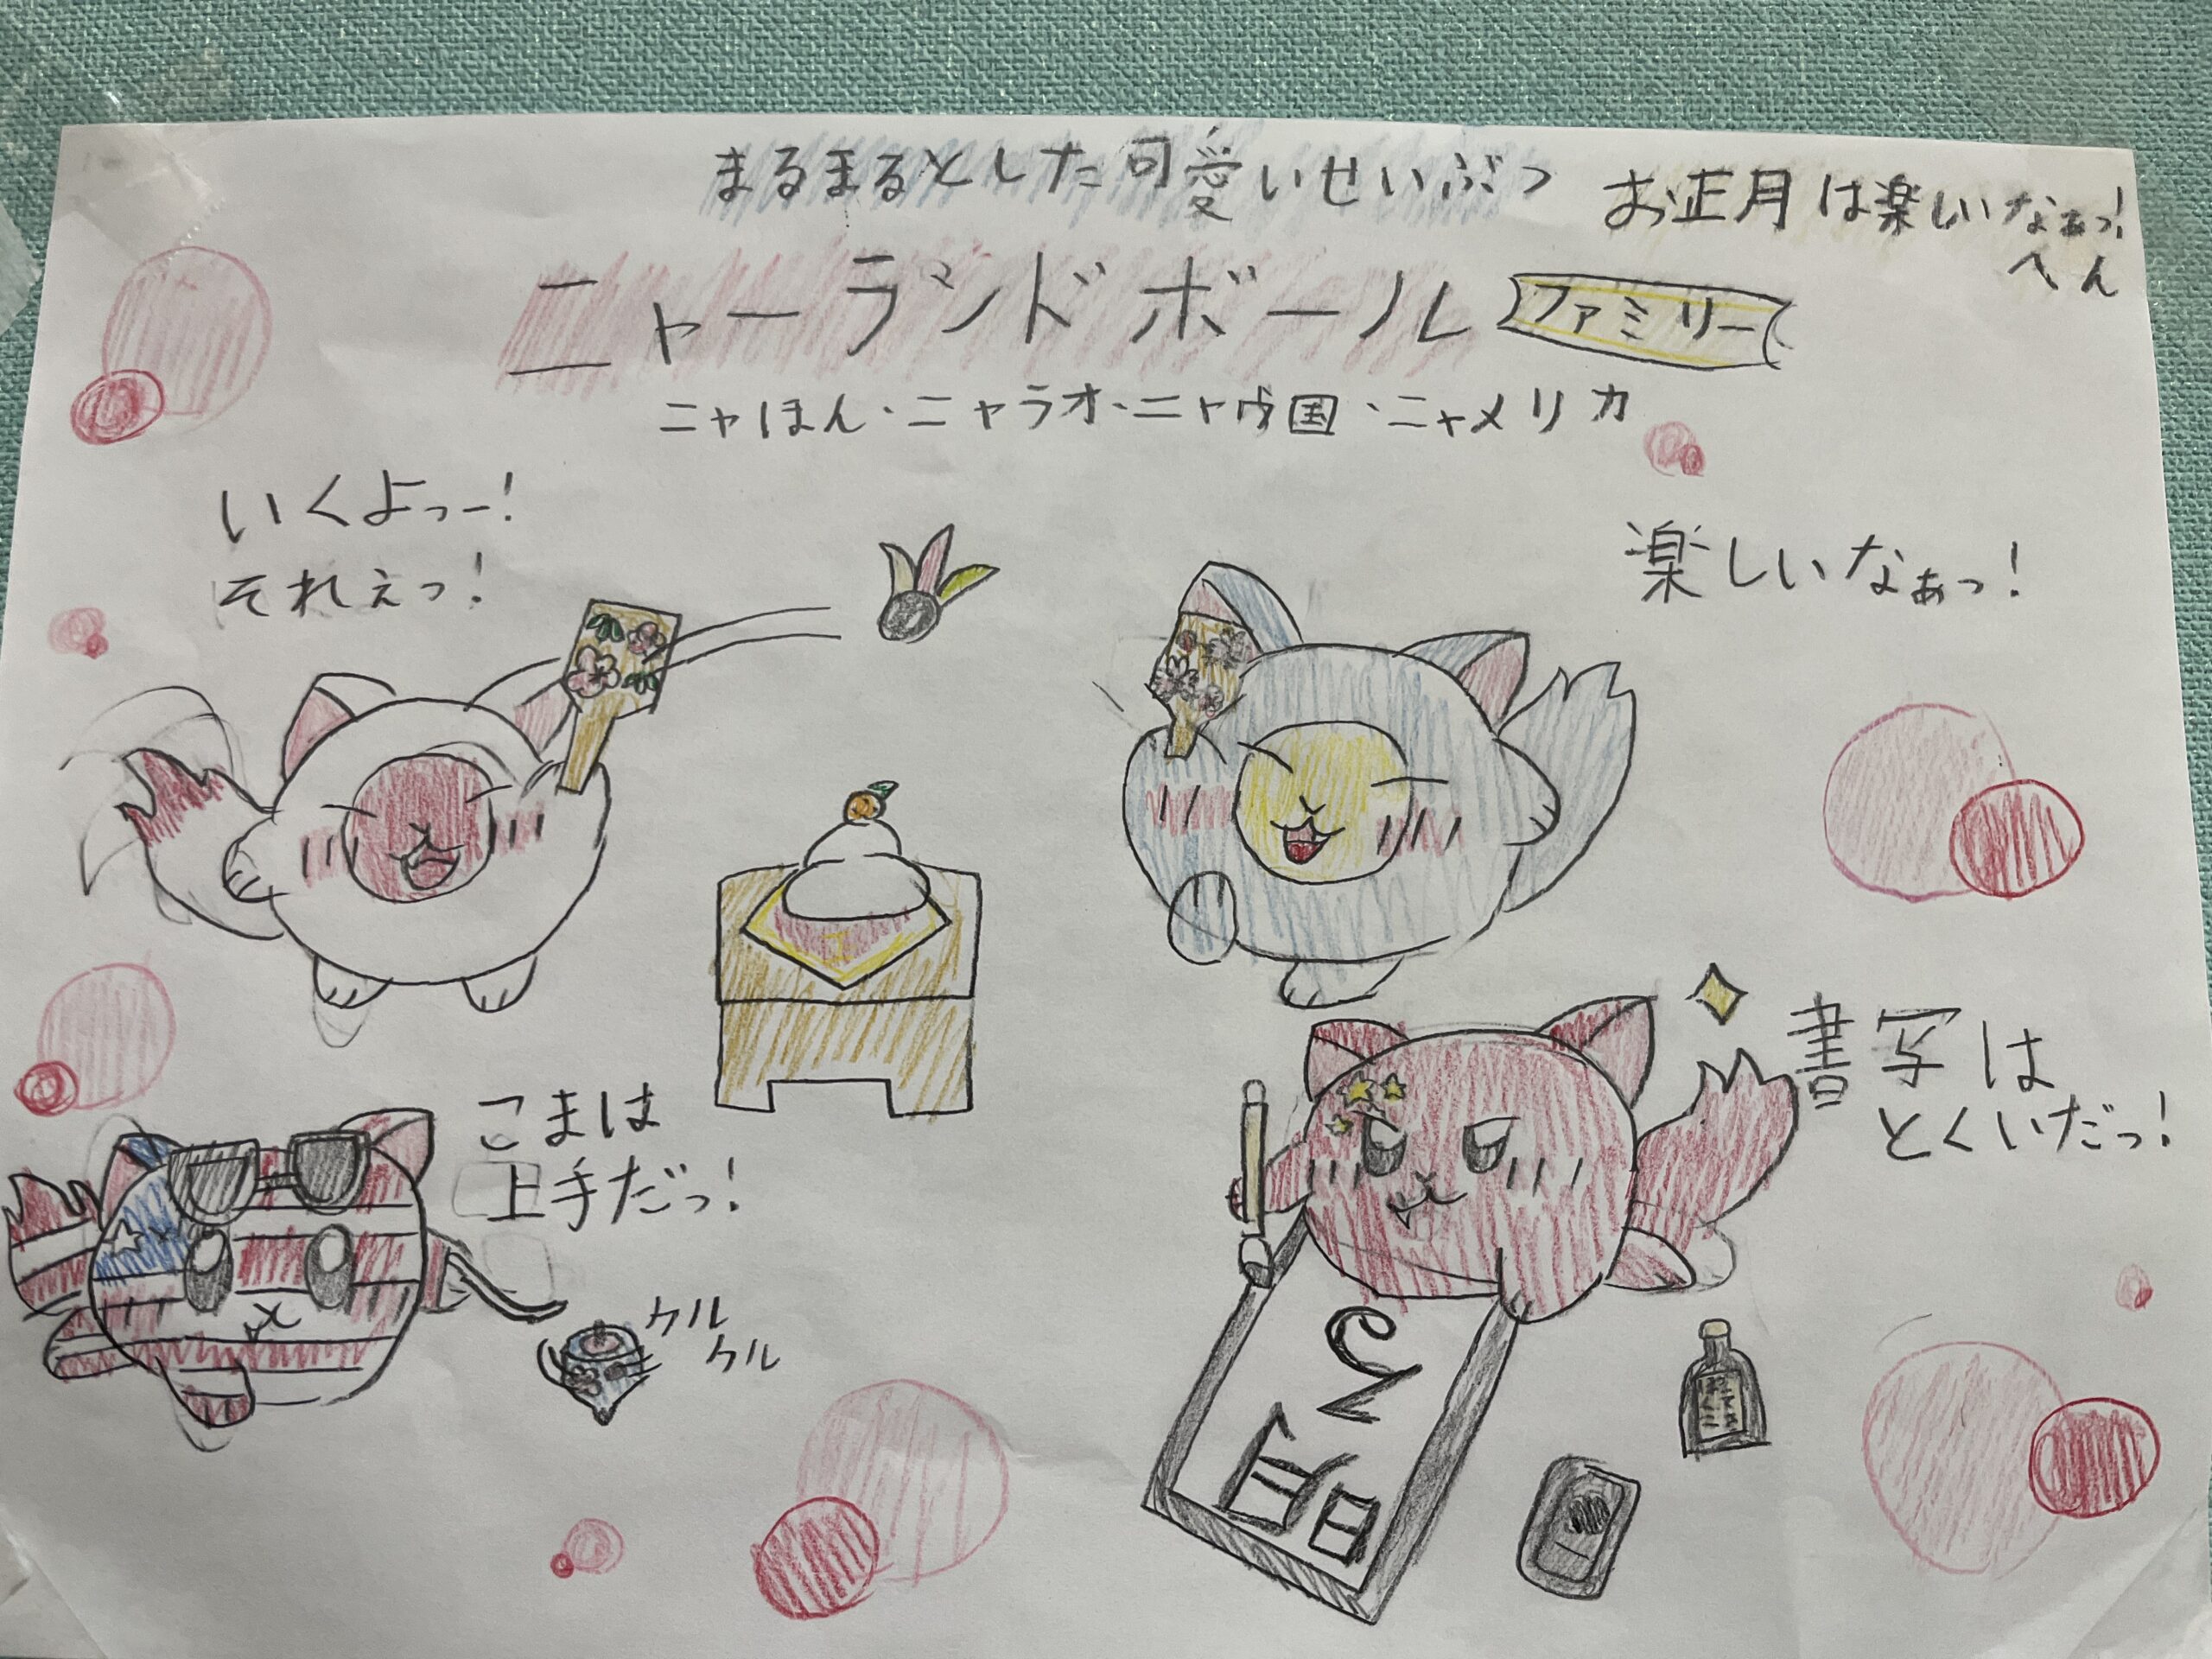 まるまるとした可愛いせいぶつ
お正月は楽しいなぁっ!
へん
ニャーランドボール
ファミリー
ニャほん・ニャラオ・ニャウ国・ニャメリカ
いくよっー!
それぇっ!
楽しいなぁっ!
こまは
上手だっ!
クルクル
書写は
とくいだっ!
明